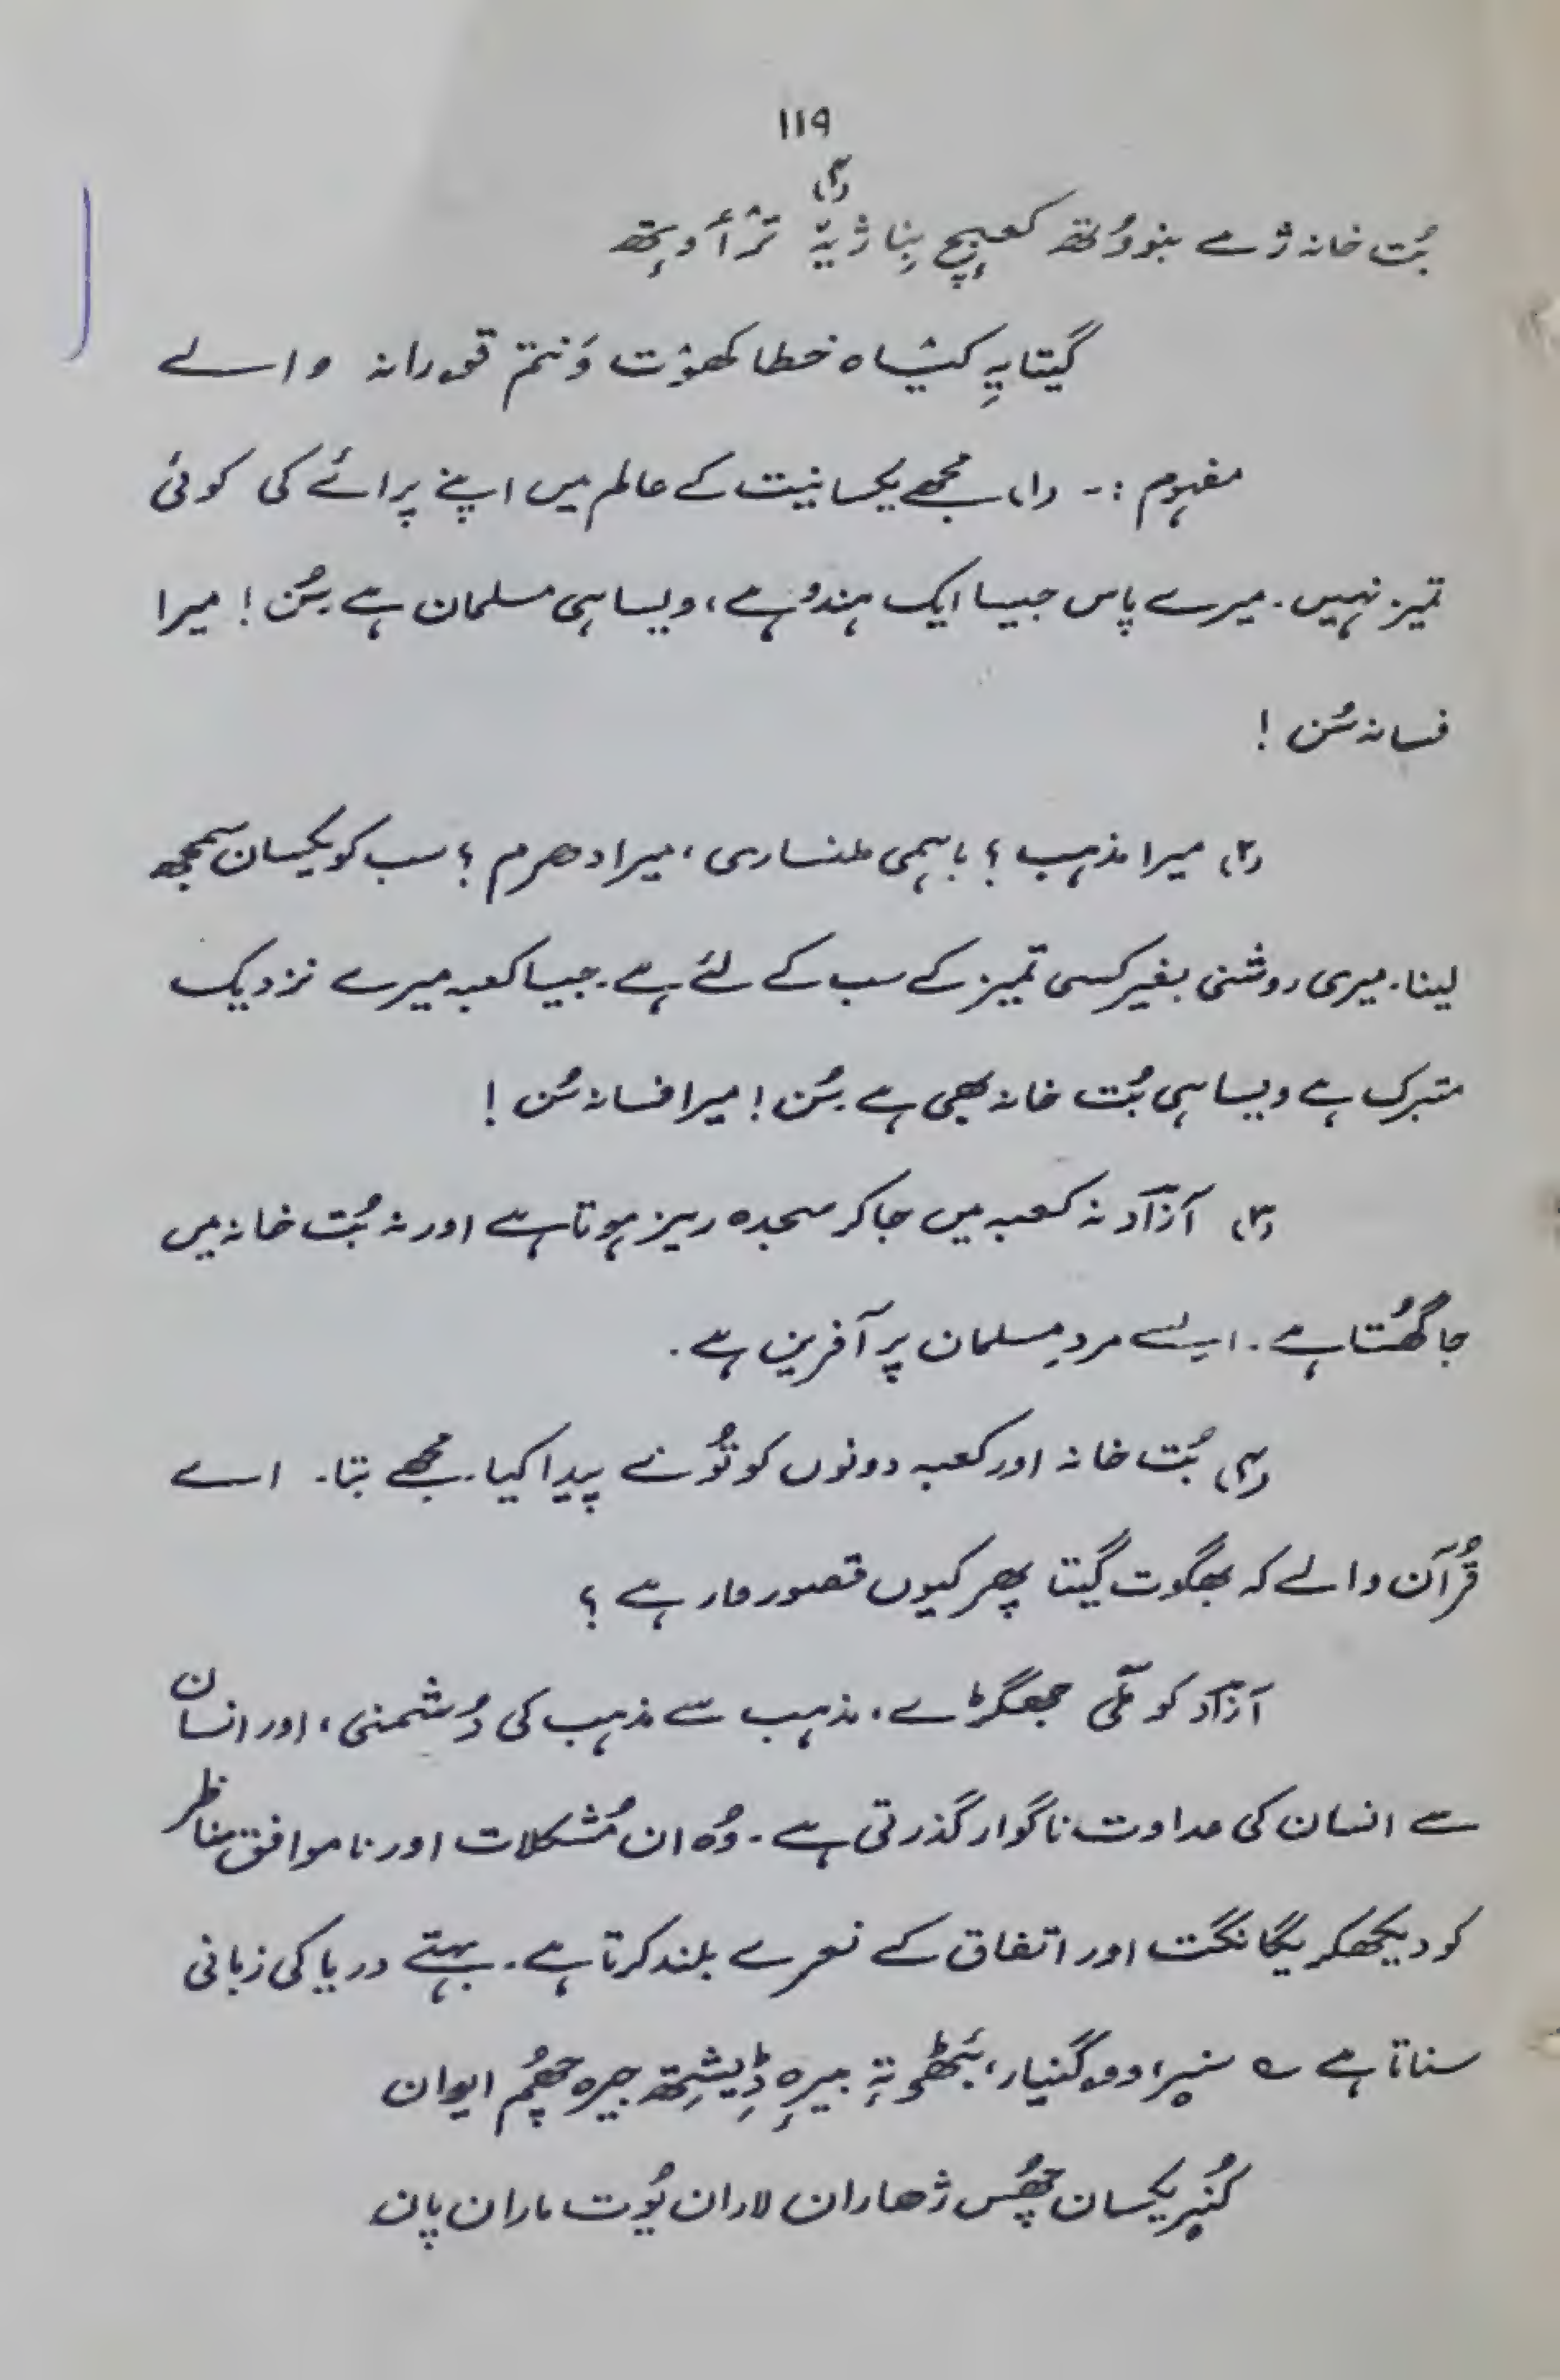 ۱۱۹
(۴)
بُت خانہ ژے بنووُتھ کعبچ بِنا ژیہٚ ترٛأوِتھ
گیتایہِ کیٛشاہ خطا کھوٚت وَنتم قۄرانہ والے
مفہوم :۔ (۱) مجھے یکسانیت کے عالم میں اپنے پرائے کی کوئی
تمیز نہیں۔ میرے پاس جیسا ایک ہندوُ ہے، ویسا ہی مسلمان ہے۔ سُن! میرا
فسانہ سُن !
(۲) میرا مذہب ؟ باہمی ملنساری، میرا دھرم ؟ سب کو یکسان سمجھ
لینا۔ میری روشنی بغیر کسی تمیز کے سب کے لئے ہے۔ جیسا کعبہ میرے نزدیک
متبرک ہے ویسا ہی بُت خانہ بھی ہے۔ سُن! میرا فسانہ سُن !
(۳) آزآد نہ کعبہ میں جا کر سجدہ ریز ہوتا ہے اور نہ بُت خانہ میں
جا گھُستا ہے۔ ایسے مردِ مسلمان پر آفرین ہے۔
(۴) بُت خانہ اور کعبہ دونوں کو توُ نے پیدا کیا۔ مجھے بتا۔ اے
قُرآن والے کہ بھگوت گیتا پھر کیوں قصوروار ہے ؟
آزآد کو ملّی جھگڑے، مذہب سے مذہب کی دُشمنی، اور انسان
سے انسان کی عداوت ناگوار گذرتی ہے۔ وُہ ان مُشکلات اور ناموافق مناظر
کو دیکھکر یگانگت اور اتفاق کے نعرے بلند کرتا ہے۔ بہتے دریا کی زبانی
سناتا ہے ؎ دوٚگنیار، بَٹھۍ تہٕ بیرِہ ڈیٖشِتھ جیرہ چھُم ایوان
یکسان چھُس ژھاران لاران یُوت ماران پان